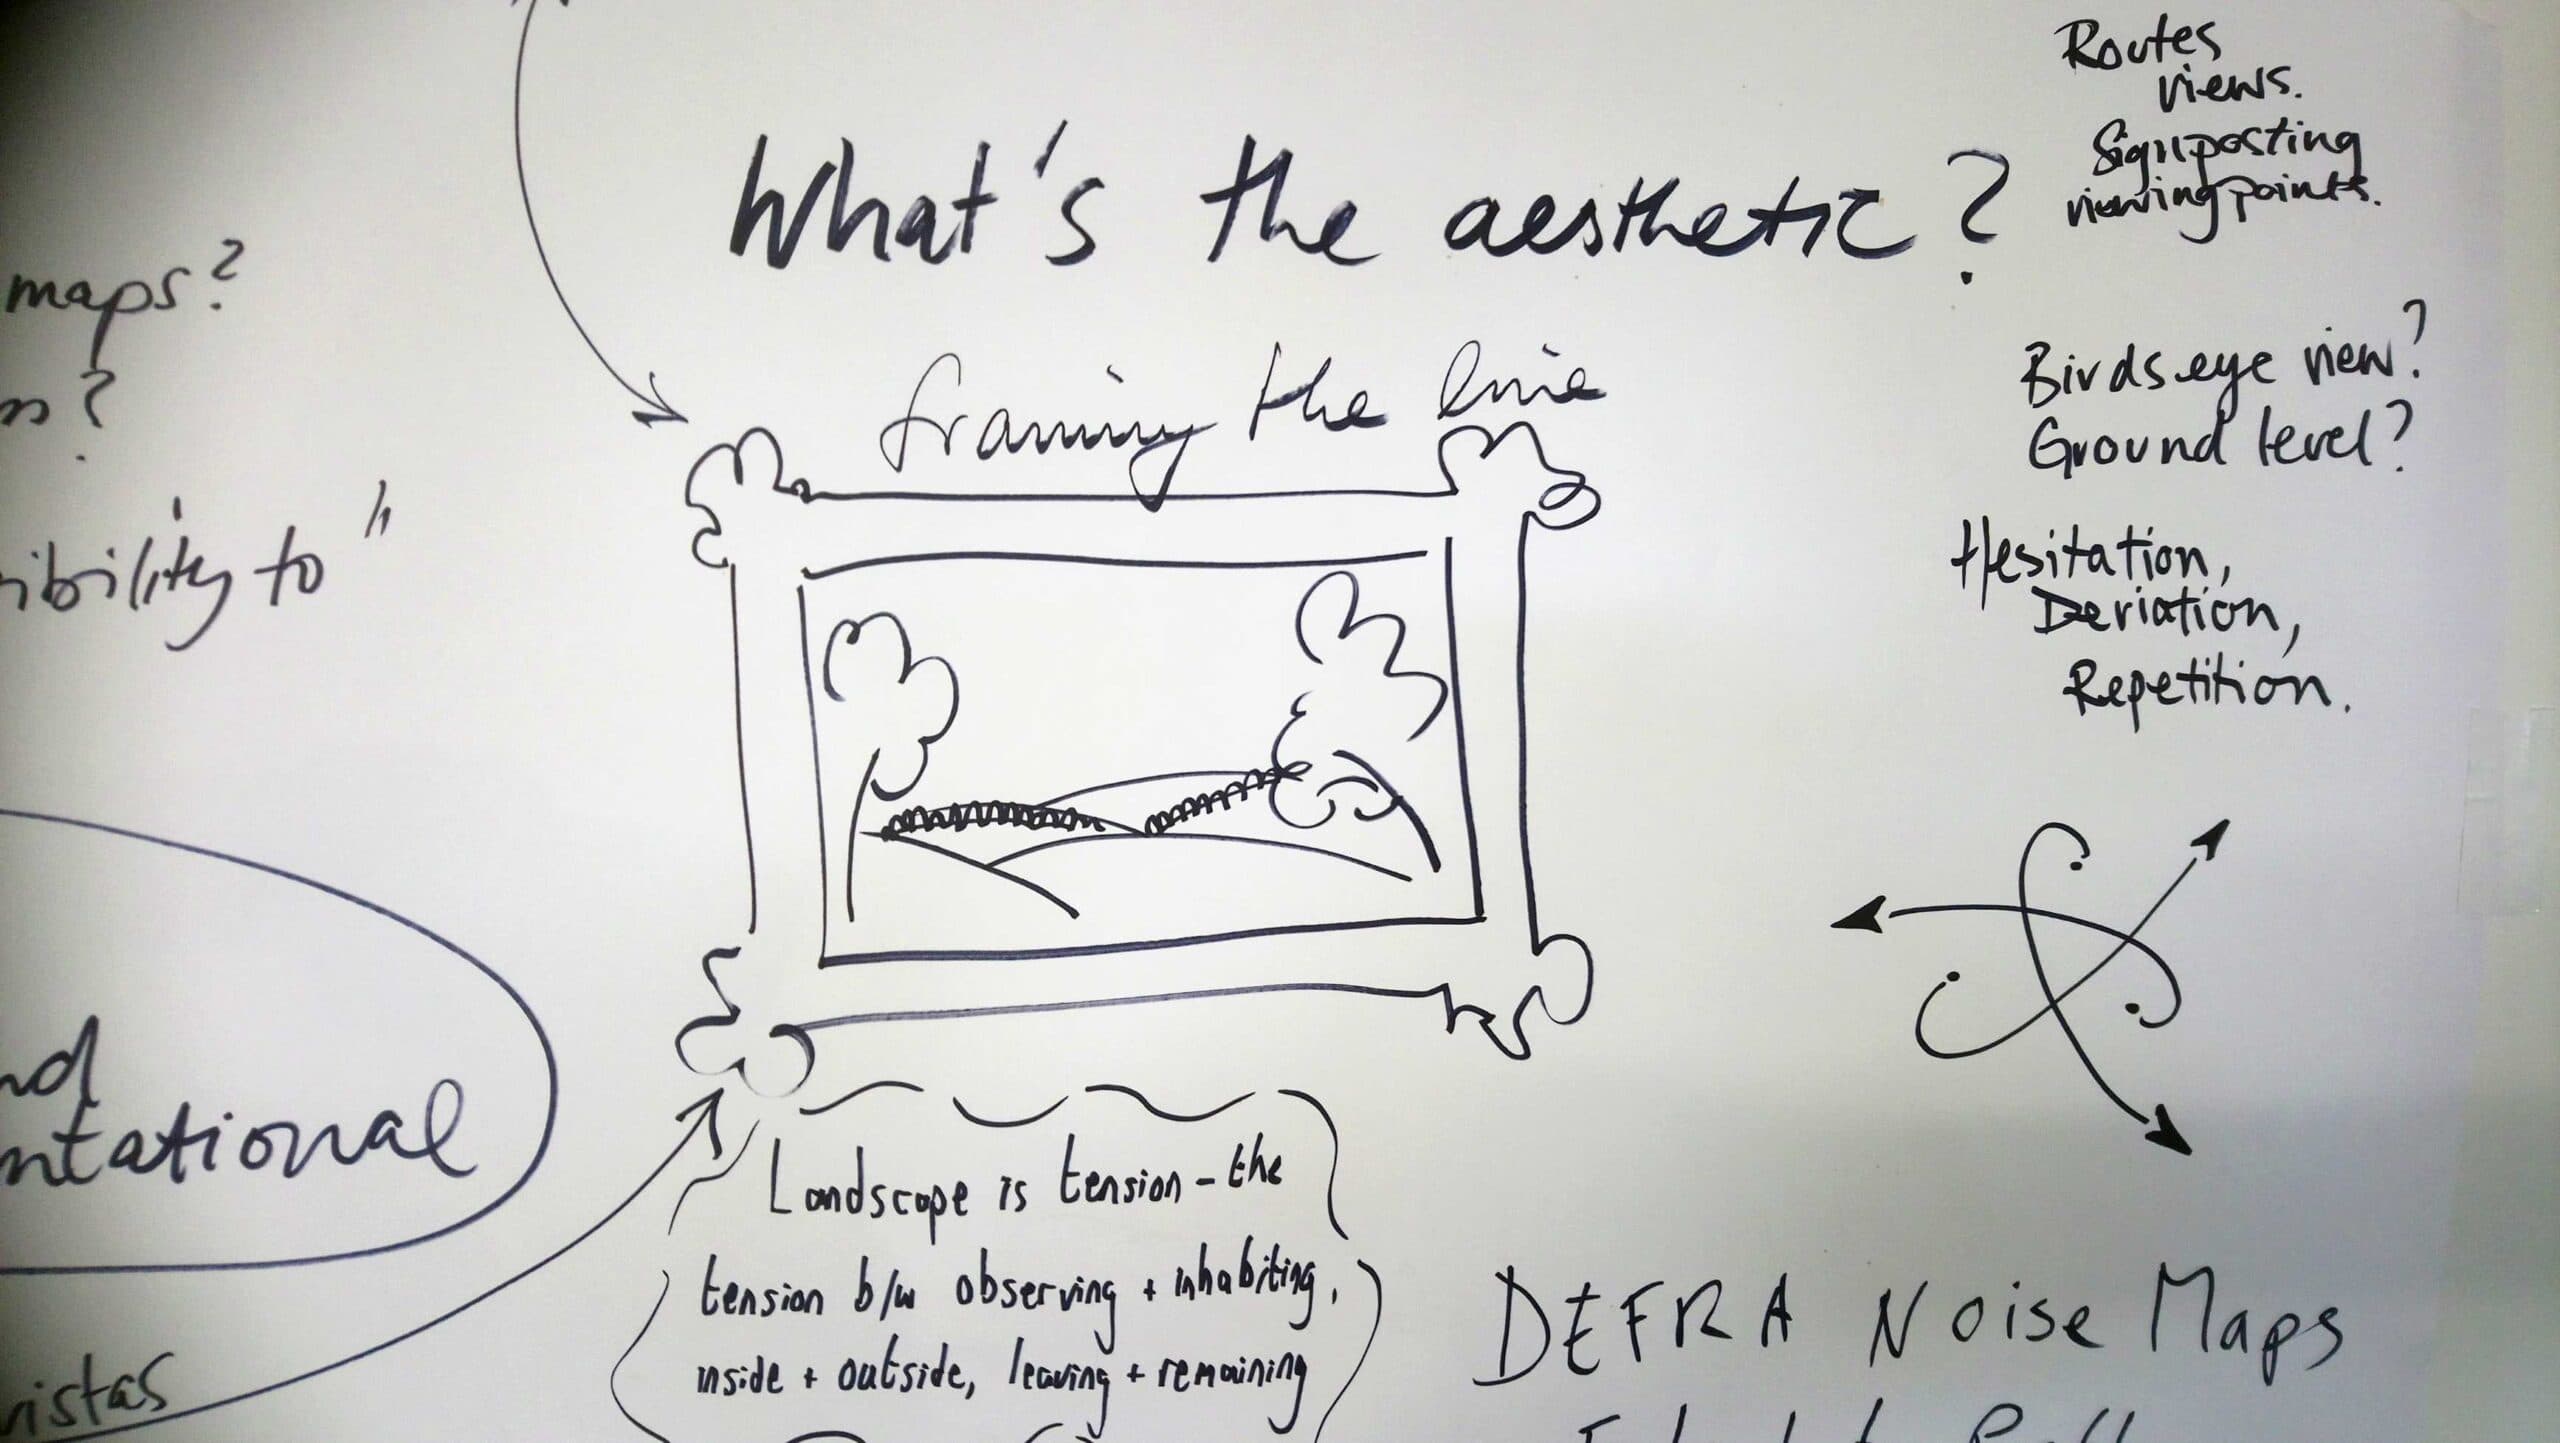 Routes
views.
Signposting
viewing points.
What's the aesthetic?
maps?
framing the line
Birdseye view?
Ground level?
"
ibility to
Hesitation,
Deviation,
Repetition.
nd
ntational
Landscape is tension - the
tension b/w observing + inhabiting,
inside + outside, leaving + remaining
DEFRA Noise Maps
vistas